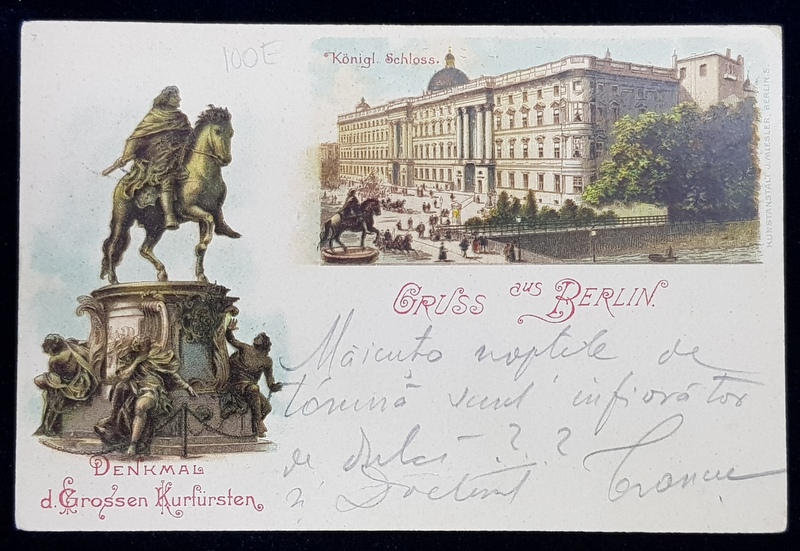 100E
Königl. Schloss.
KUNSTANSTALT J. MIESLER, BERLIN S.
GRUSS aus BERLIN.
Măicuța nopțile de
tómnă sunt infiorător
de dulci ? ?
și Doctorul
DENKMAL
d. Grossen Kurfürsten